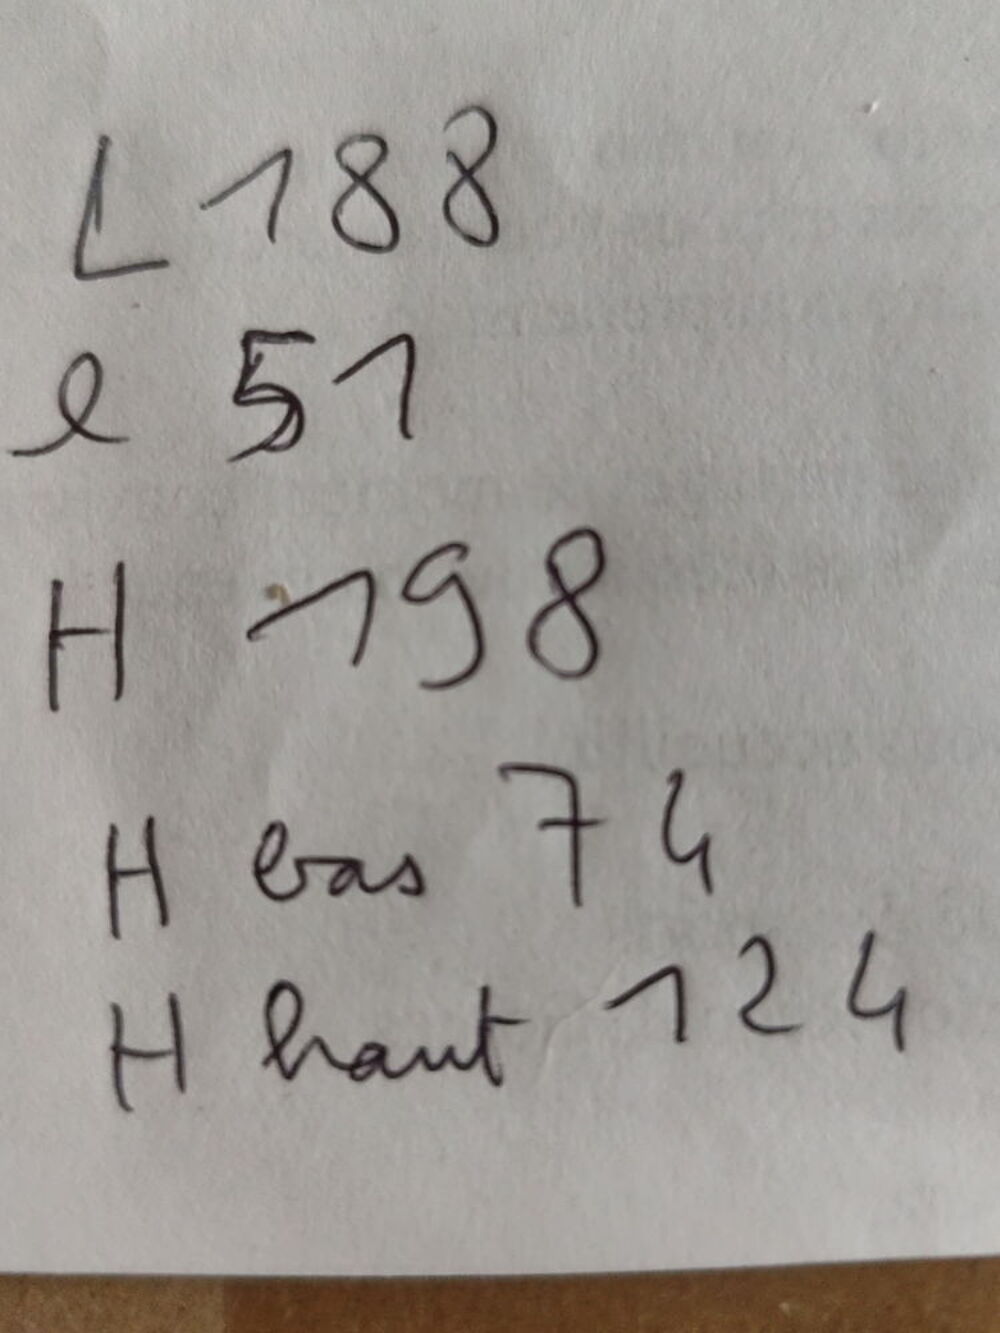 L 188
l 51
H 198
H bas 74
H haut 124